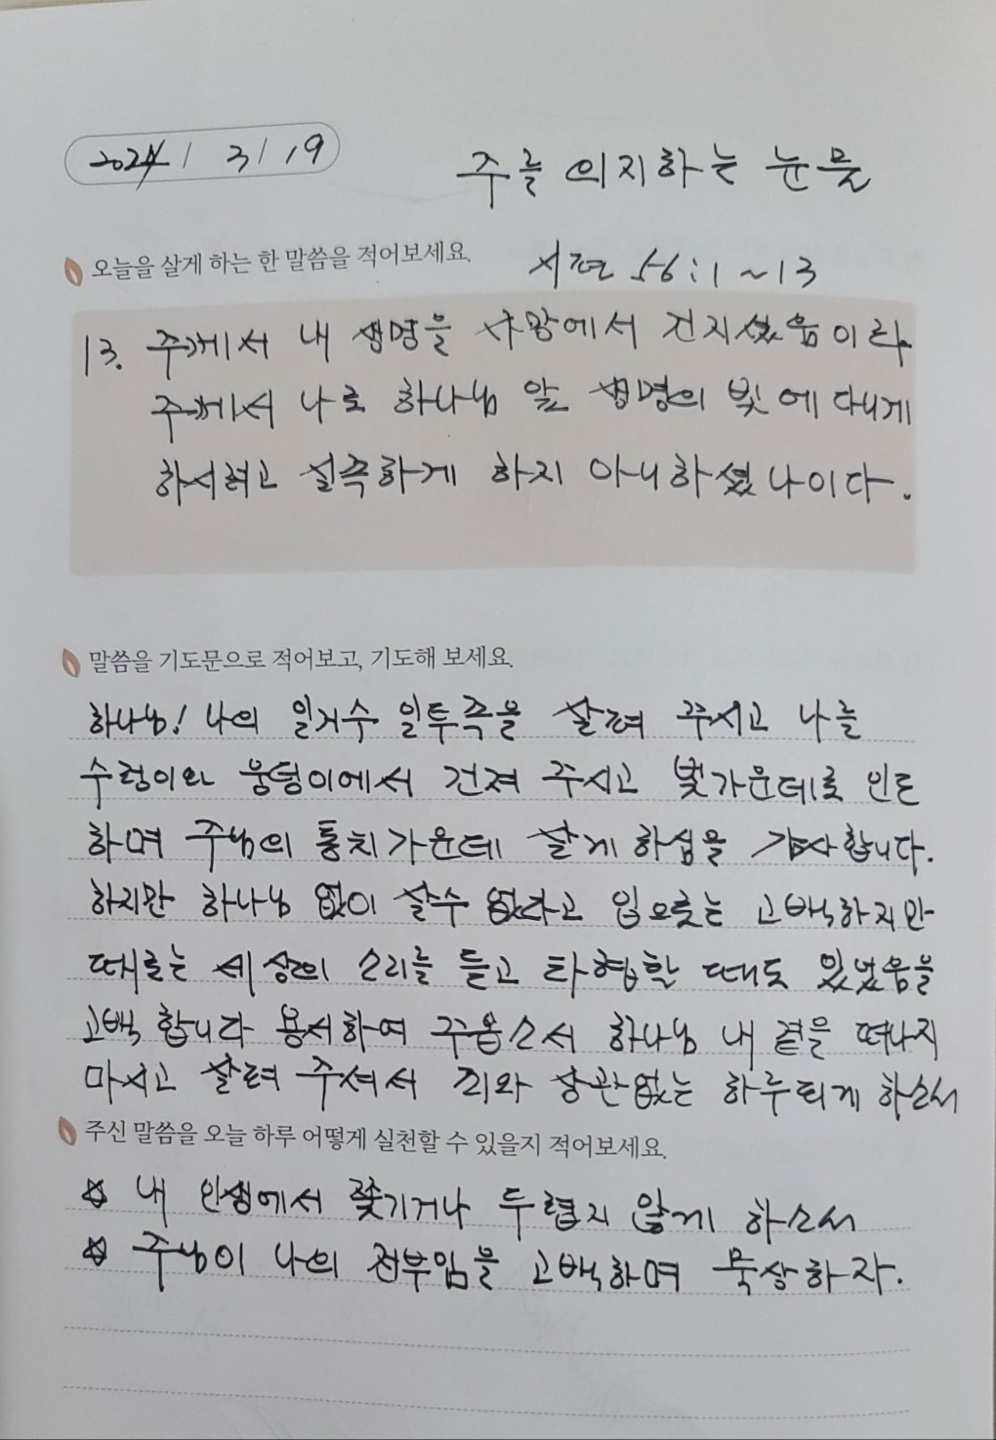 2024 / 3 / 19
주를 의지하는 눈물
오늘을 살게 하는 한 말씀을 적어보세요.
시편 56:1~13
13. 주께서 내 생명을 사망에서 건지셨음이라
주께서 나로 하나님 앞 생명의 빛에 다니게
하시려고 실족하게 하지 아니하셨나이다.
말씀을 기도문으로 적어보고, 기도해 보세요.
하나님! 나의 일거수 일투족을 살펴 주시고 나를
수렁이와 웅덩이에서 건져 주시고 빛가운데로 인도
하며 주님의 통치가운데 살게 하심을 감사합니다.
하지만 하나님 없이 살수 없다고 입으로는 고백하지만
때로는 세상의 소리를 듣고 타협할 때도 있었음을
고백 합니다 용서하여 주옵소서 하나님 내 곁을 떠나지
마시고 살펴 주셔서 죄와 상관없는 하루되게 하소서
주신 말씀을 오늘 하루 어떻게 실천할 수 있을지 적어보세요.
☆ 내 인생에서 쫓기거나 두렵지 않게 하소서
☆ 주님이 나의 전부임을 고백하며 묵상하자.